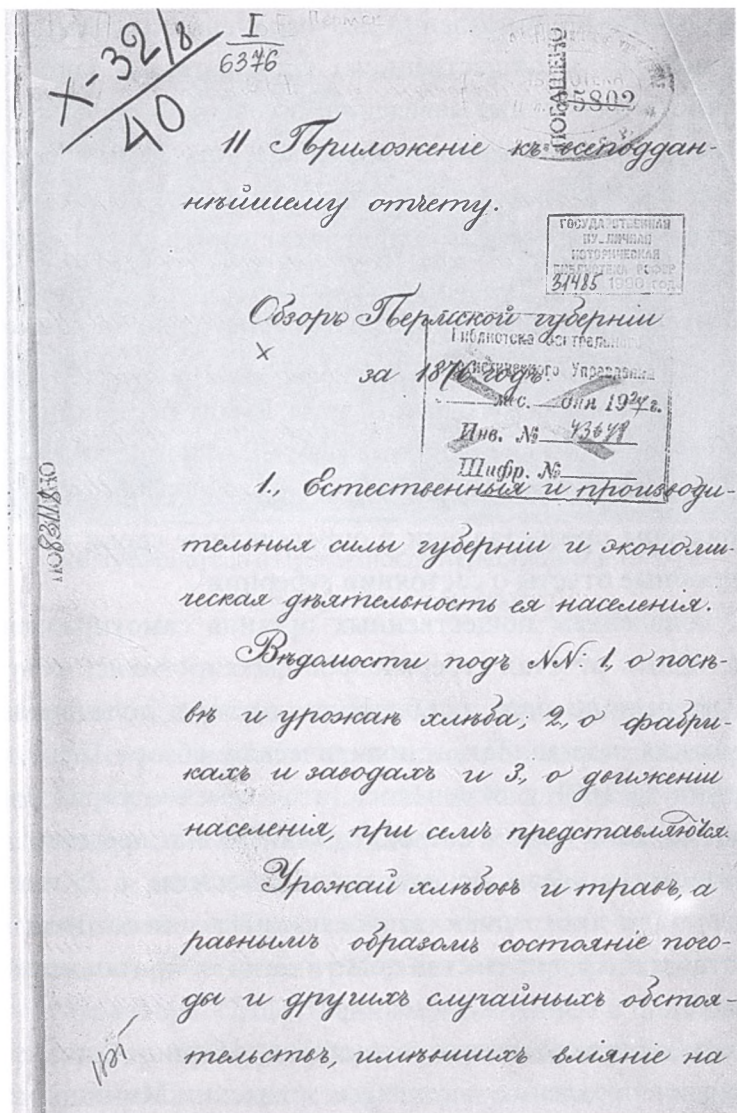 X-32/8
40
I
6376
ПОГАШЕНО
5802
II Приложеніе къ всеподдан-
нѣйшему отчету.
ГОСУДАРСТВЕННАЯ
ПУБЛИЧНАЯ
ИСТОРИЧЕСКАЯ
БИБЛИОТЕКА РСФСР
31485 1990 год
Обзоръ Пермской губерніи
за 1876 годъ.
Библиотека Центрально
Управления
1927 г.
Инв. № 43648
Шифр. №
1., Естественныя и производи-
тельныя силы губерніи и экономи-
ческая дѣятельность ея населенія.
Вѣдомости подъ NN: 1, о посѣ-
вѣ и урожаѣ хлѣба; 2, о фабри-
кахъ и заводахъ и 3., о движеніи
населенія, при семъ представляются.
Урожай хлѣбовъ и травъ, а
равнымъ образомъ состояніе пого-
ды и другихъ случайныхъ обстоя-
тельствъ, имѣвшихъ вліяніе на